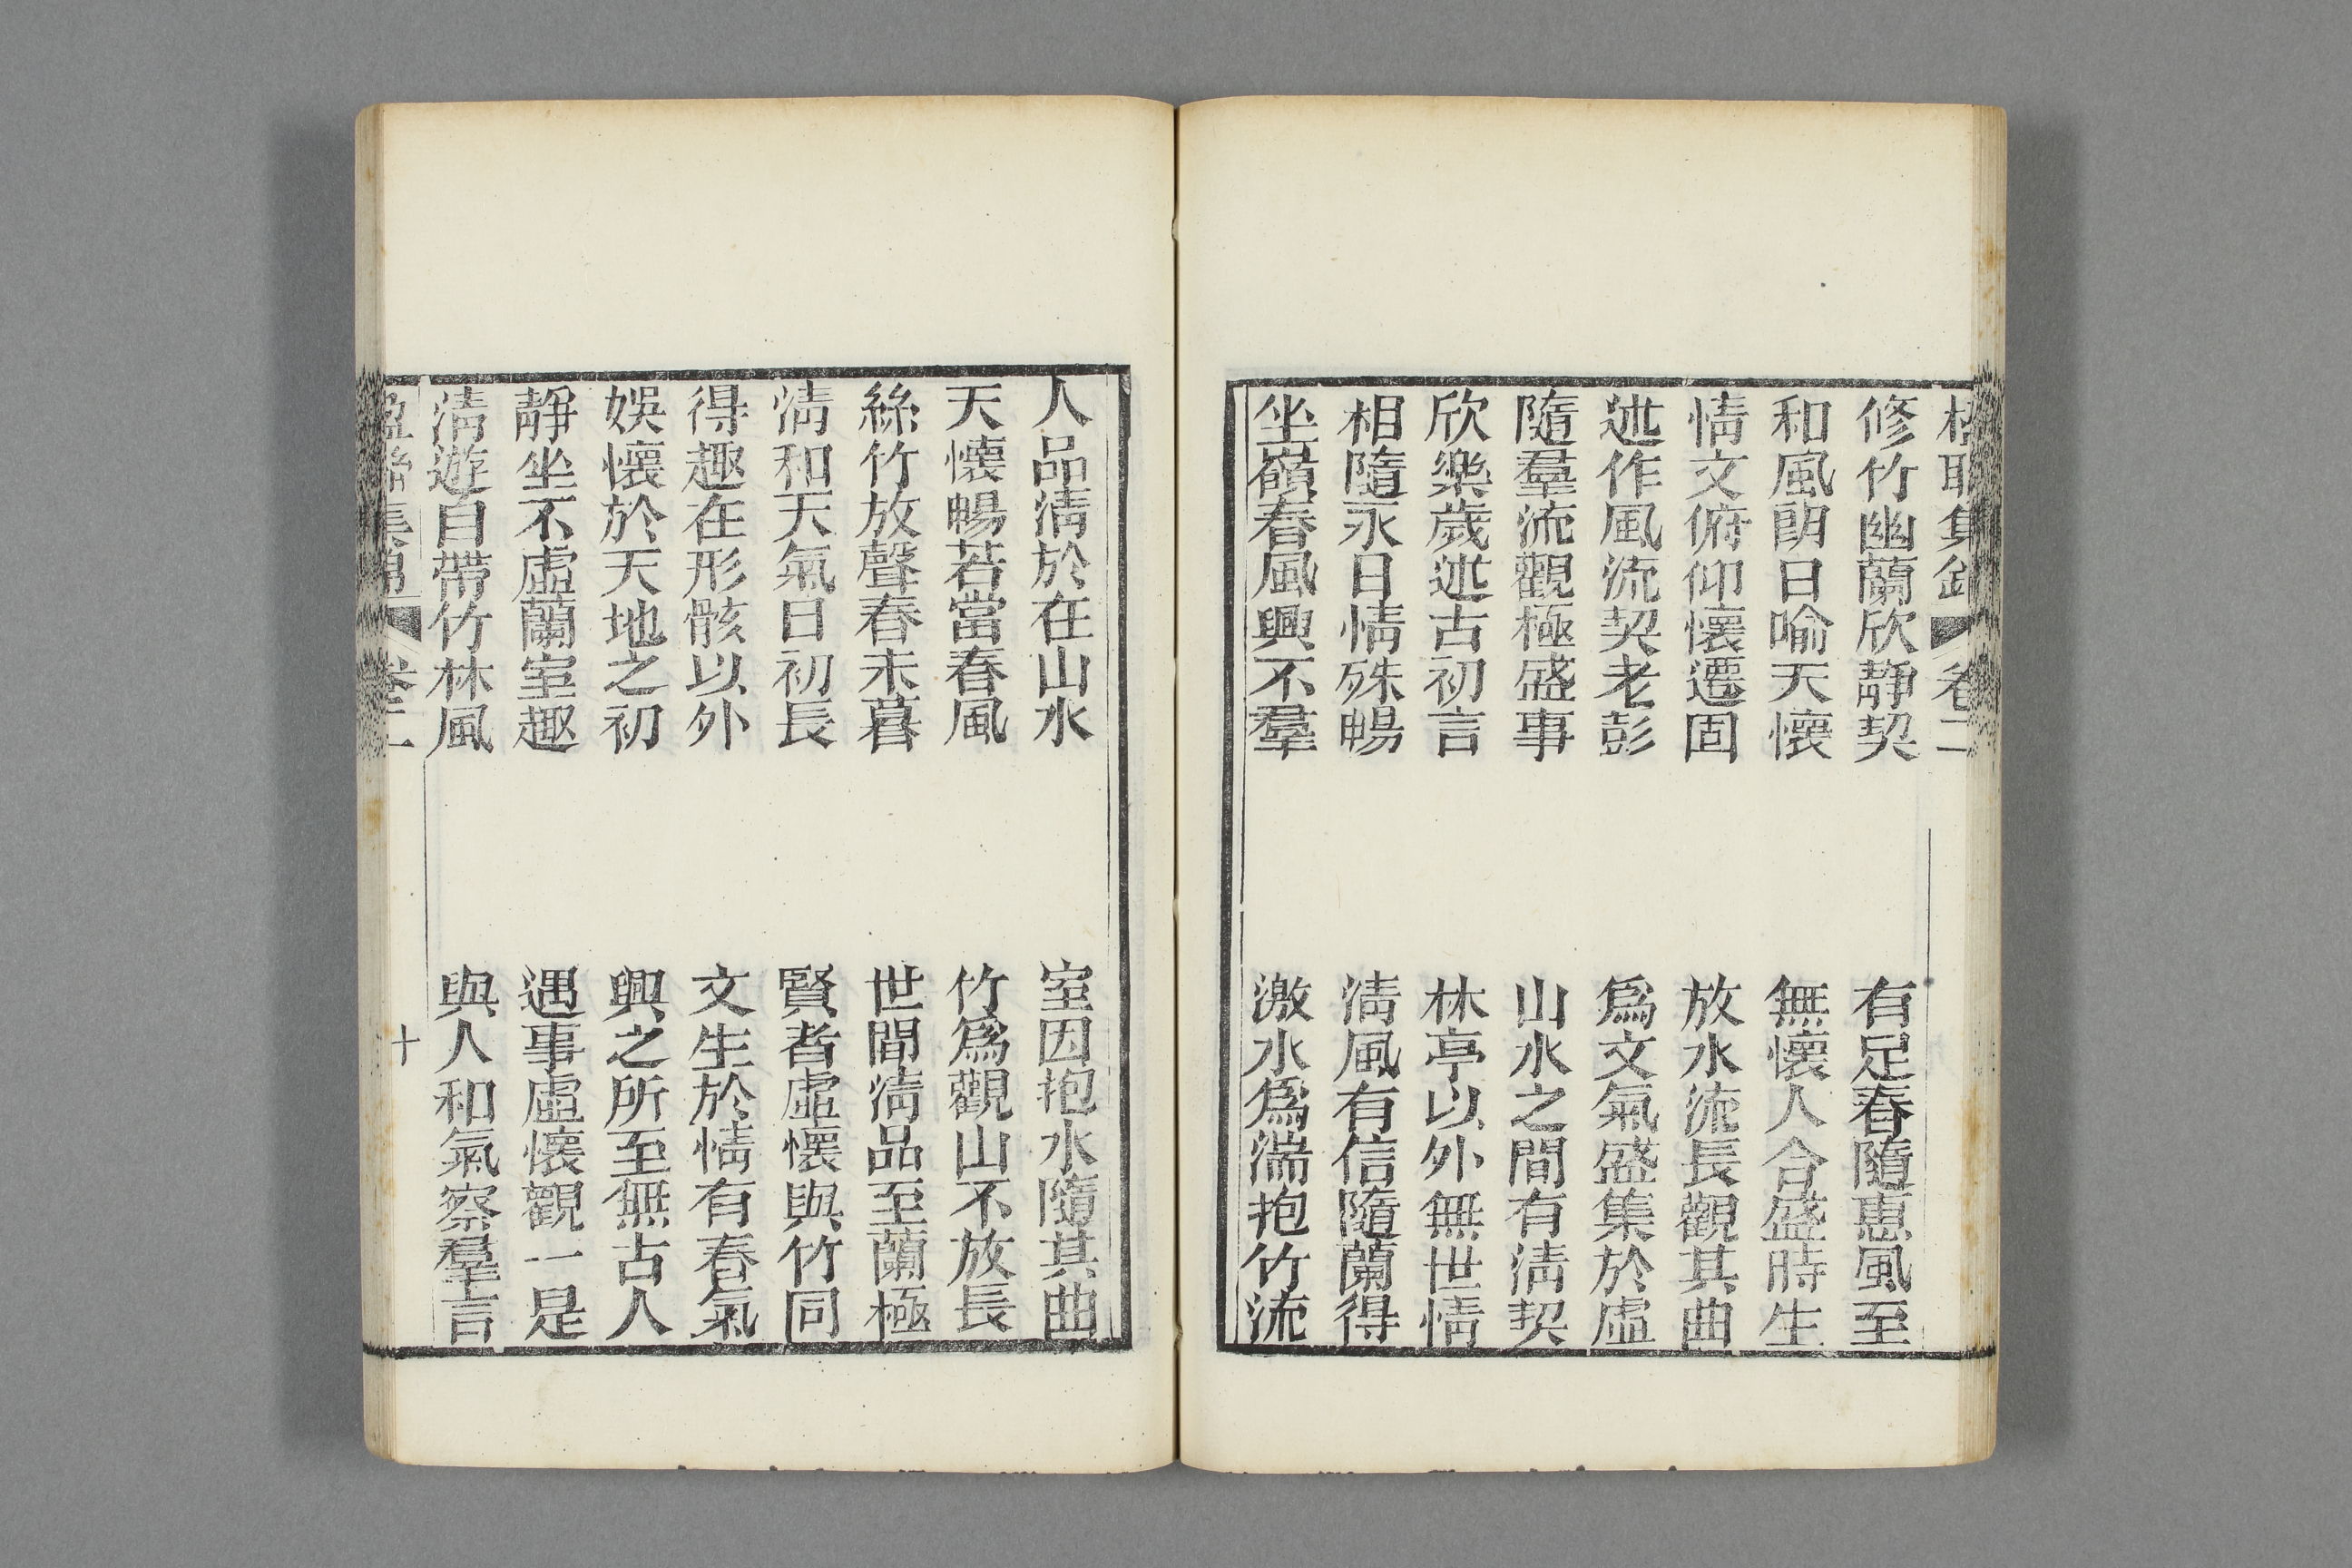 修竹幽蘭欣靜契
有足春隨惠風至
和風朗日喻天懷
無懷人合盛時生
情文俯仰懷遷固
放水流長觀其曲
述作風流契老彭
爲文氣盛集於虛
隨羣流觀極盛事
山水之間有淸契
欣樂歲述古初言
林亭以外無世情
相隨永日情殊暢
淸風有信隨蘭得
坐嶺春風興不羣
激水爲湍抱竹流
人品淸於在山水
室因抱水隨其曲
天懷暢若當春風
竹爲觀山不放長
絲竹放聲春未暮
世間淸品至蘭極
淸和天氣日初長
賢者虛懷與竹同
得趣在形骸以外
文生於情有春氣
娛懷於天地之初
興之所至無古人
靜坐不虛蘭室趣
遇事虛懷觀一是
淸遊自帶竹林風
與人和氣察羣言
十